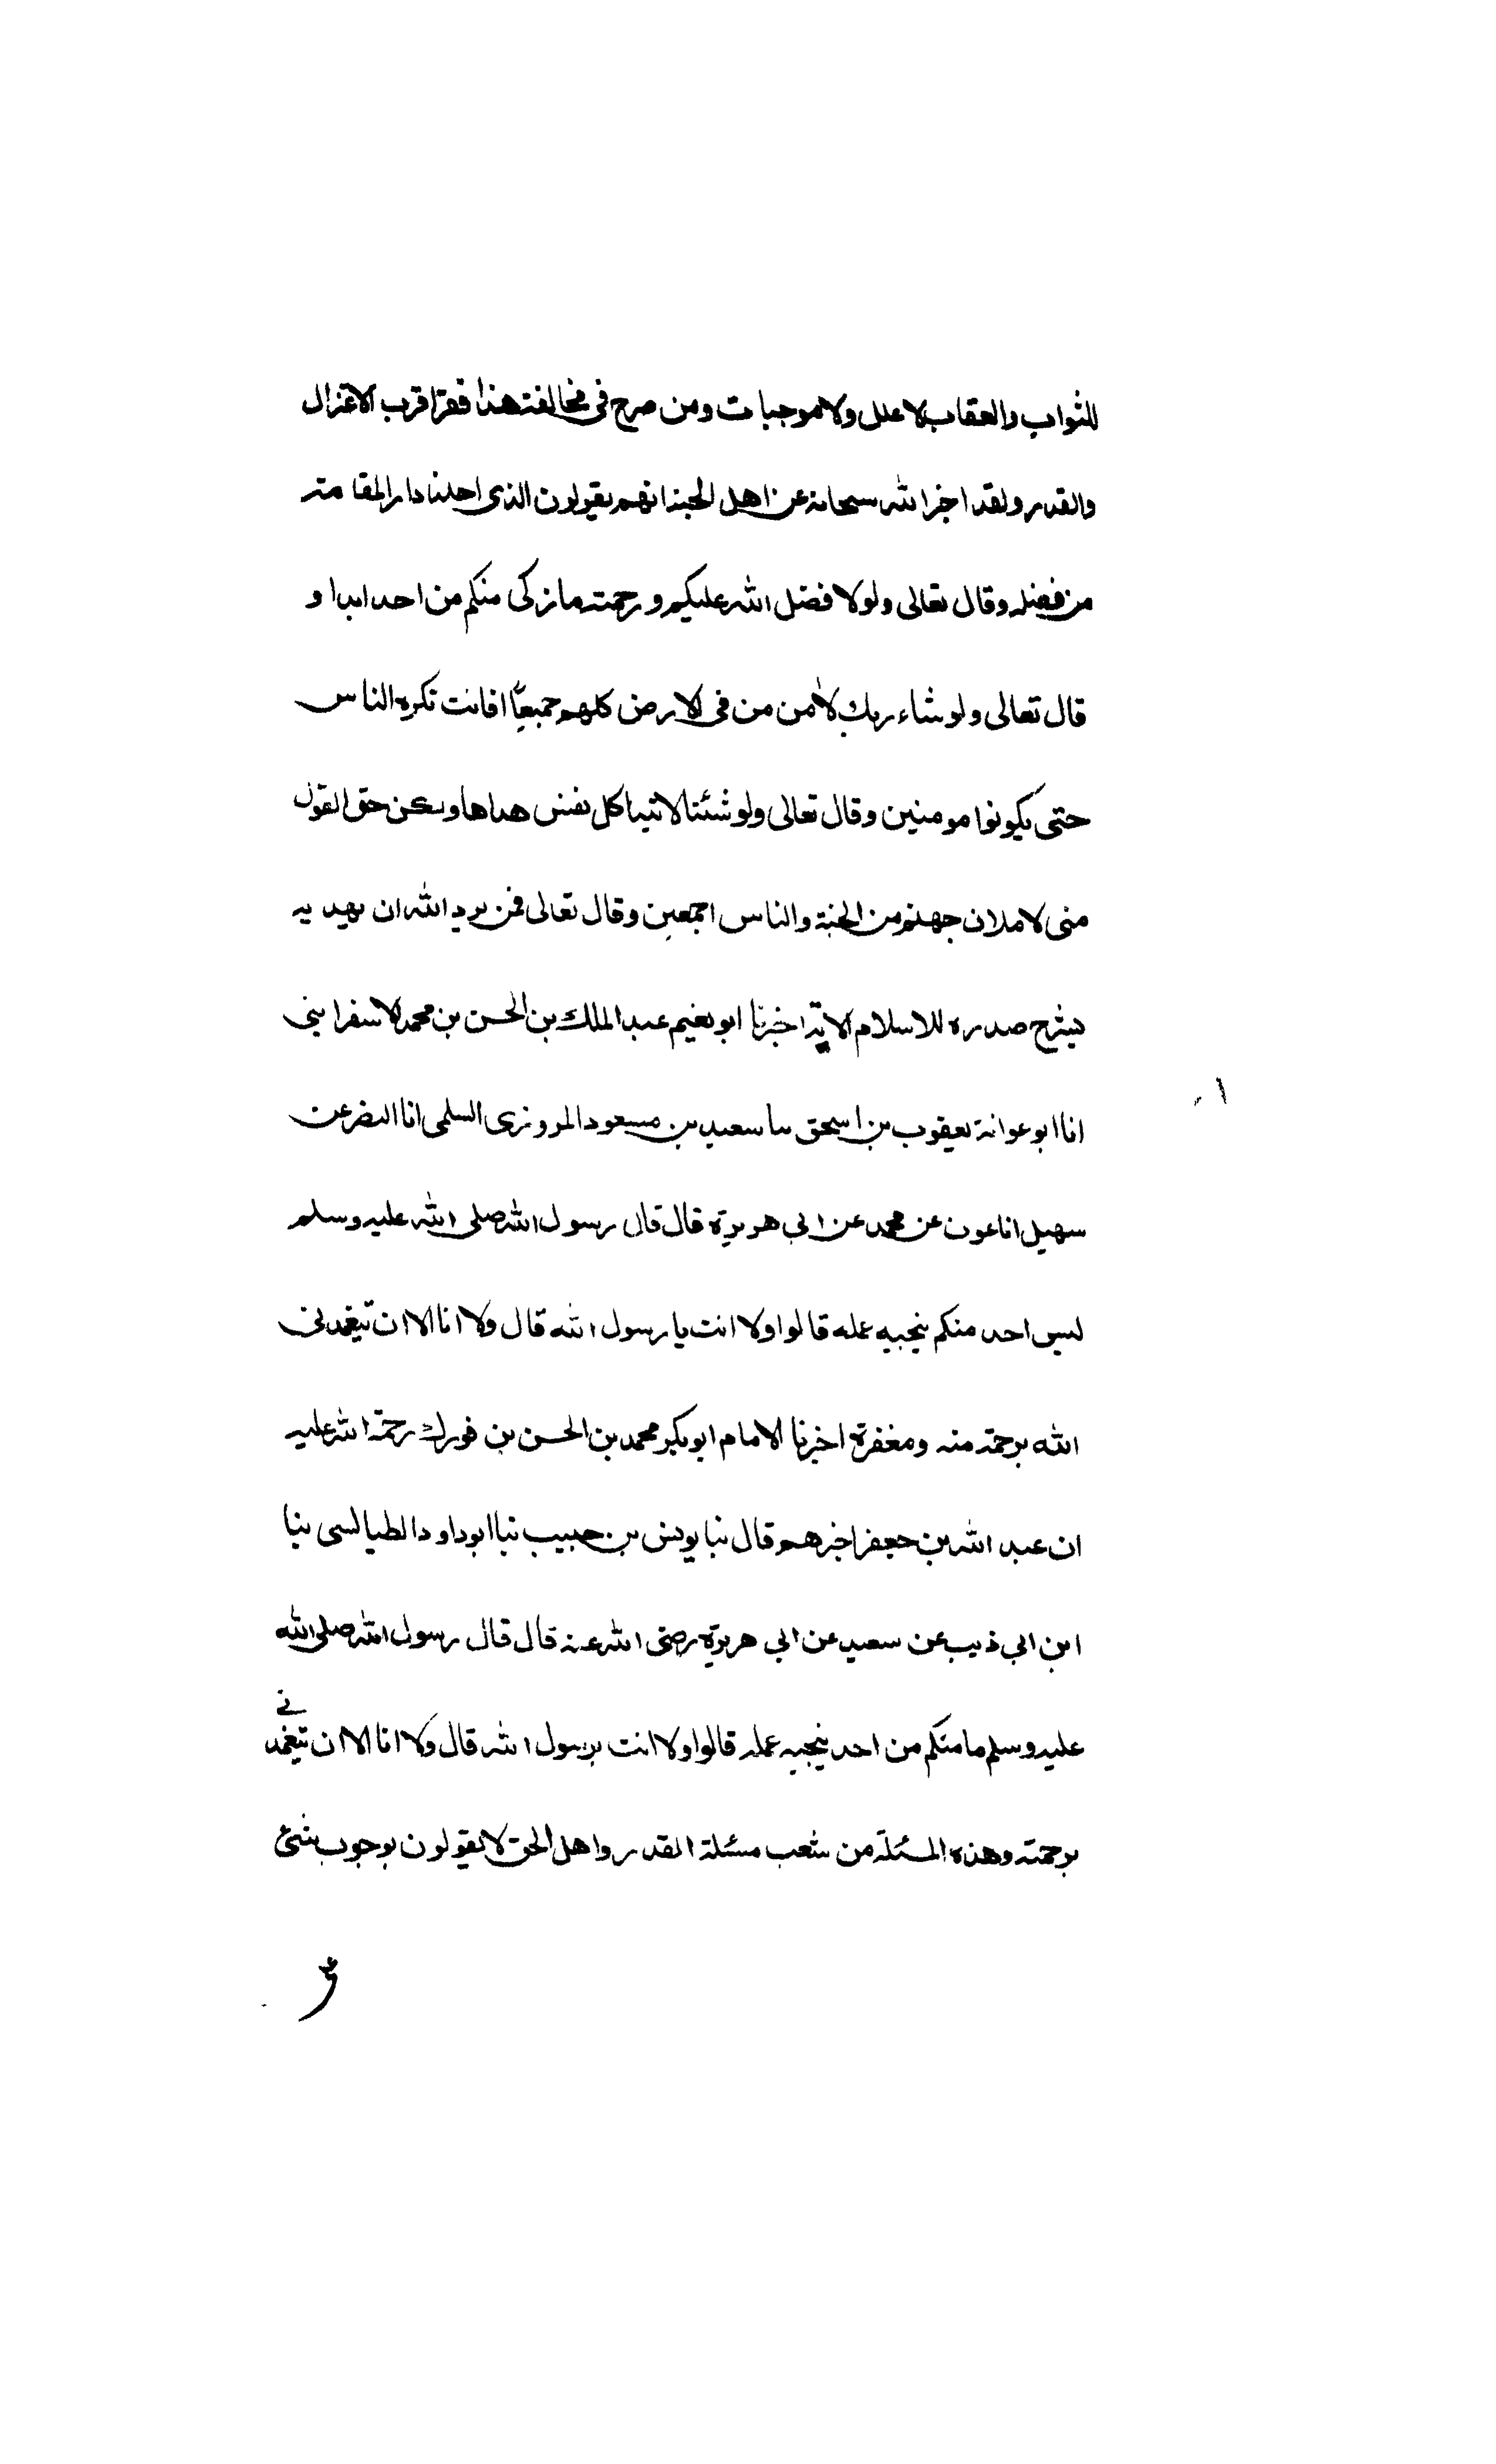 للثواب والعقاب لا علل ولا موجبات ومن صرح في مخالفة هذا فقد اقرب الاعتزال
والقدر ولقد اخبر الله سبحانه عن اهل الجنة انهم يقولون الذي احلنا دار المقامة
من فضله وقال تعالى ولولا فضل الله عليكم ورحمته ما زكى منكم من احد ابدا و
قال تعالى ولو شاء ربك لأمن من في الارض كلهم جميعًا افانت تكره الناس
حتى يكونوا مومنين وقال تعالى ولو شئنا لاتينا كل نفس هداها ولكن حق القول
منى لاملان جهنم من الجنة والناس اجمعين وقال تعالى فمن يرد الله ان يهديه
يشرح صدره للاسلام الاية اخبرنا ابو نعيم عبد الملك بن الحسن بن محمد الاسفرايني
انا ابو عوانة يعقوب بن اسحق سا سعيد بن مسعود المروزى السلمى انا النضر عن
سهيل انا عون عن محمد عن ابي هريرة قال قال رسول الله صلى الله عليه وسلم
ليس احد منكم ينجيه عمله قالوا ولا انت يا رسول الله قال ولا انا الا ان يتغمدنى
الله برحمة منه ومغفرة اخبرنا الامام ابو بكر محمد بن الحسن بن فورك رحمة الله عليه
ان عبد الله بن جعفر اخبرهم قال ثبا يونس بن حبيب ثبا ابو داود الطيالسى ثبا
ابن ابي ذيب عن سعيد عن ابي هريرة رضى الله عنه قال قال رسول الله صلى الله
عليه وسلم ما منكم من احد ينجيه عمله قالوا ولا انت يرسول الله قال ولا انا الا ان يتغمدنے
برحمته وهذه المسئلة من شعب مسئلة القدر واهل الحق لا يقولون بوجوب شئ